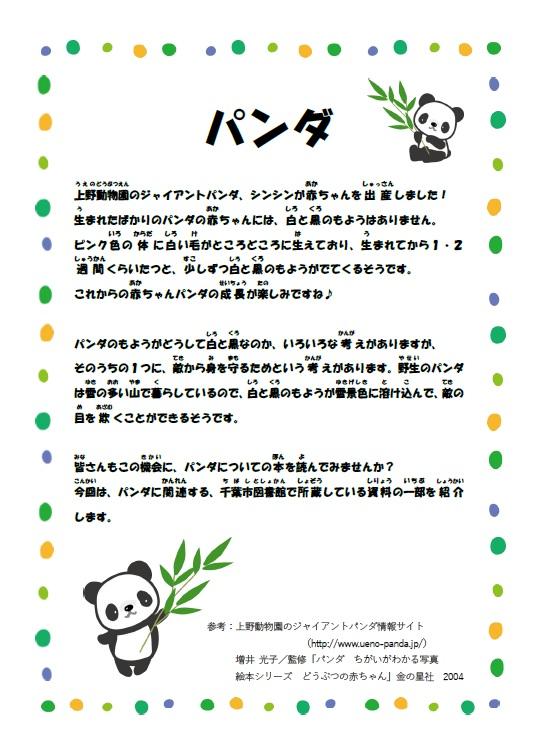 パンダ
上野動物園のジャイアントパンダ、シンシンが赤ちゃんを出産しました！
生まれたばかりのパンダの赤ちゃんには、白と黒のもようはありません。
ピンク色の体に白い毛がところどころに生えており、生まれてから１・２
週間くらいたつと、少しずつ白と黒のもようがでてくるそうです。
これからの赤ちゃんパンダの成長が楽しみですね♪
パンダのもようがどうして白と黒なのか、いろいろな考えがありますが、
そのうちの１つに、敵から身を守るためという考えがあります。野生のパンダ
は雪の多い山で暮らしているので、白と黒のもようが雪景色に溶け込んで、敵の
目を欺くことができるそうです。
皆さんもこの機会に、パンダについての本を読んでみませんか？
今回は、パンダに関連する、千葉市図書館で所蔵している資料の一部を紹介
します。
参考：上野動物園のジャイアントパンダ情報サイト
（http://www.ueno-panda.jp/）
増井 光子／監修「パンダ　ちがいがわかる写真
絵本シリーズ　どうぶつの赤ちゃん」金の星社　2004